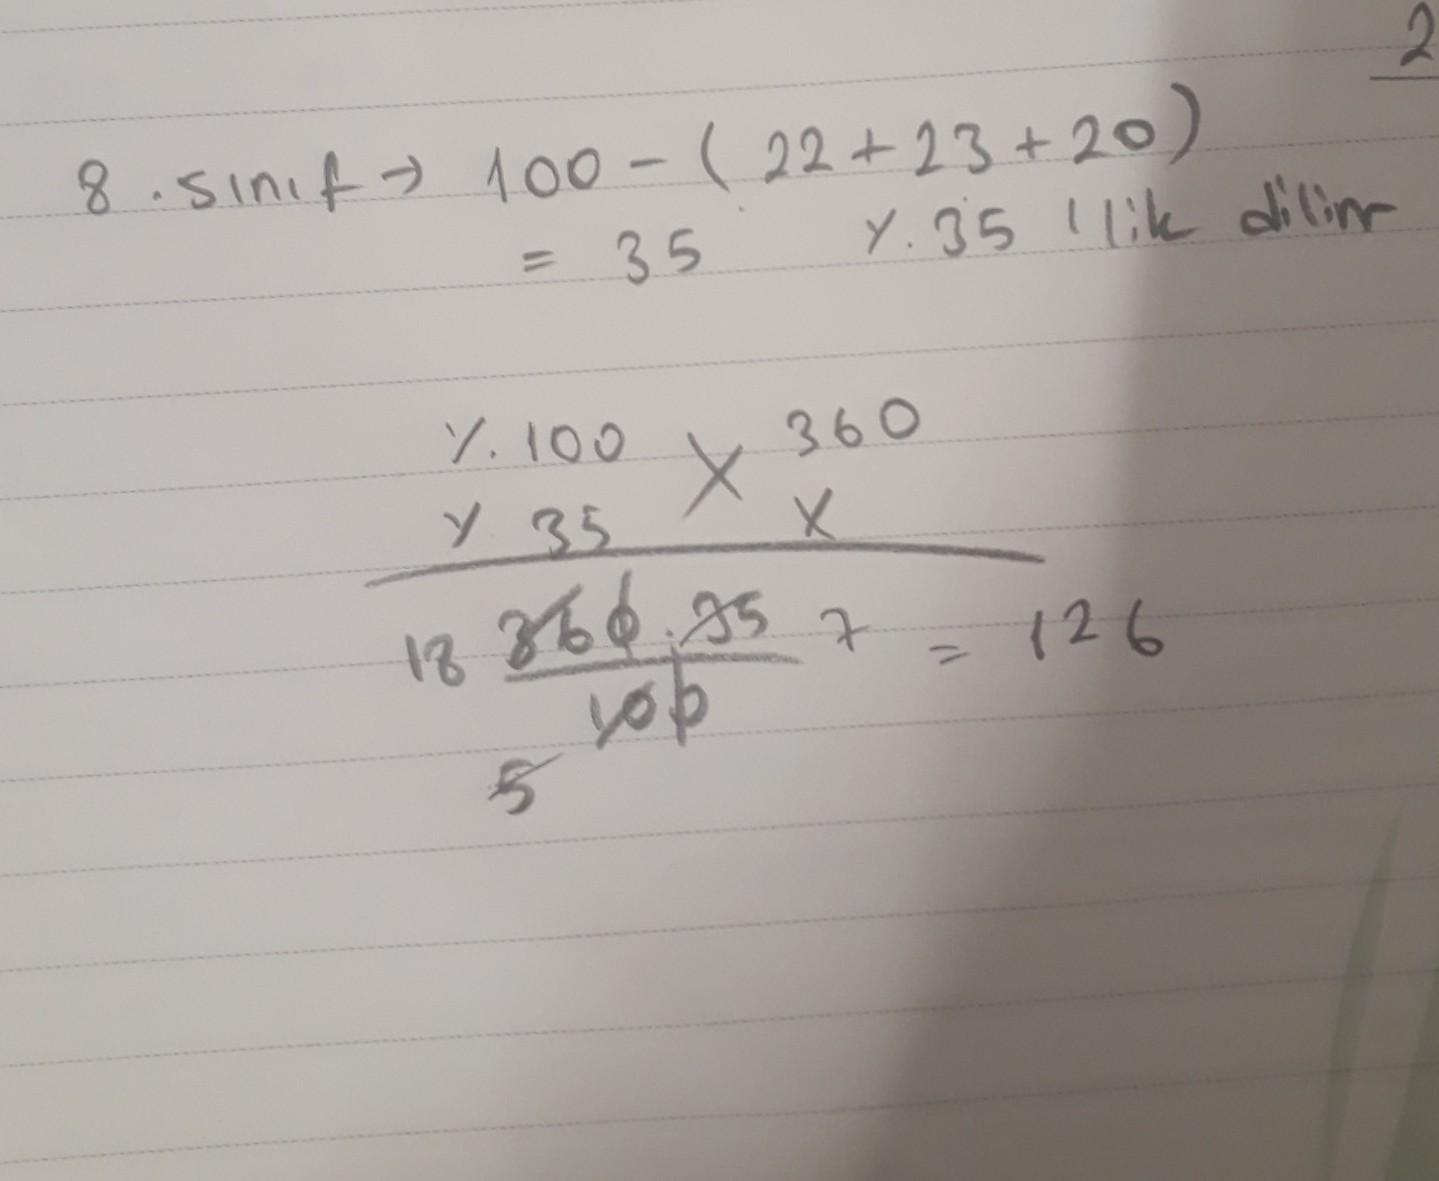 2
8.sınıf → 100 - ( 22 + 23 + 20 )
= 35 %.35 'lik dilim
%.100 X 360
% 35 X
18 360.35 7 = 126
100
5